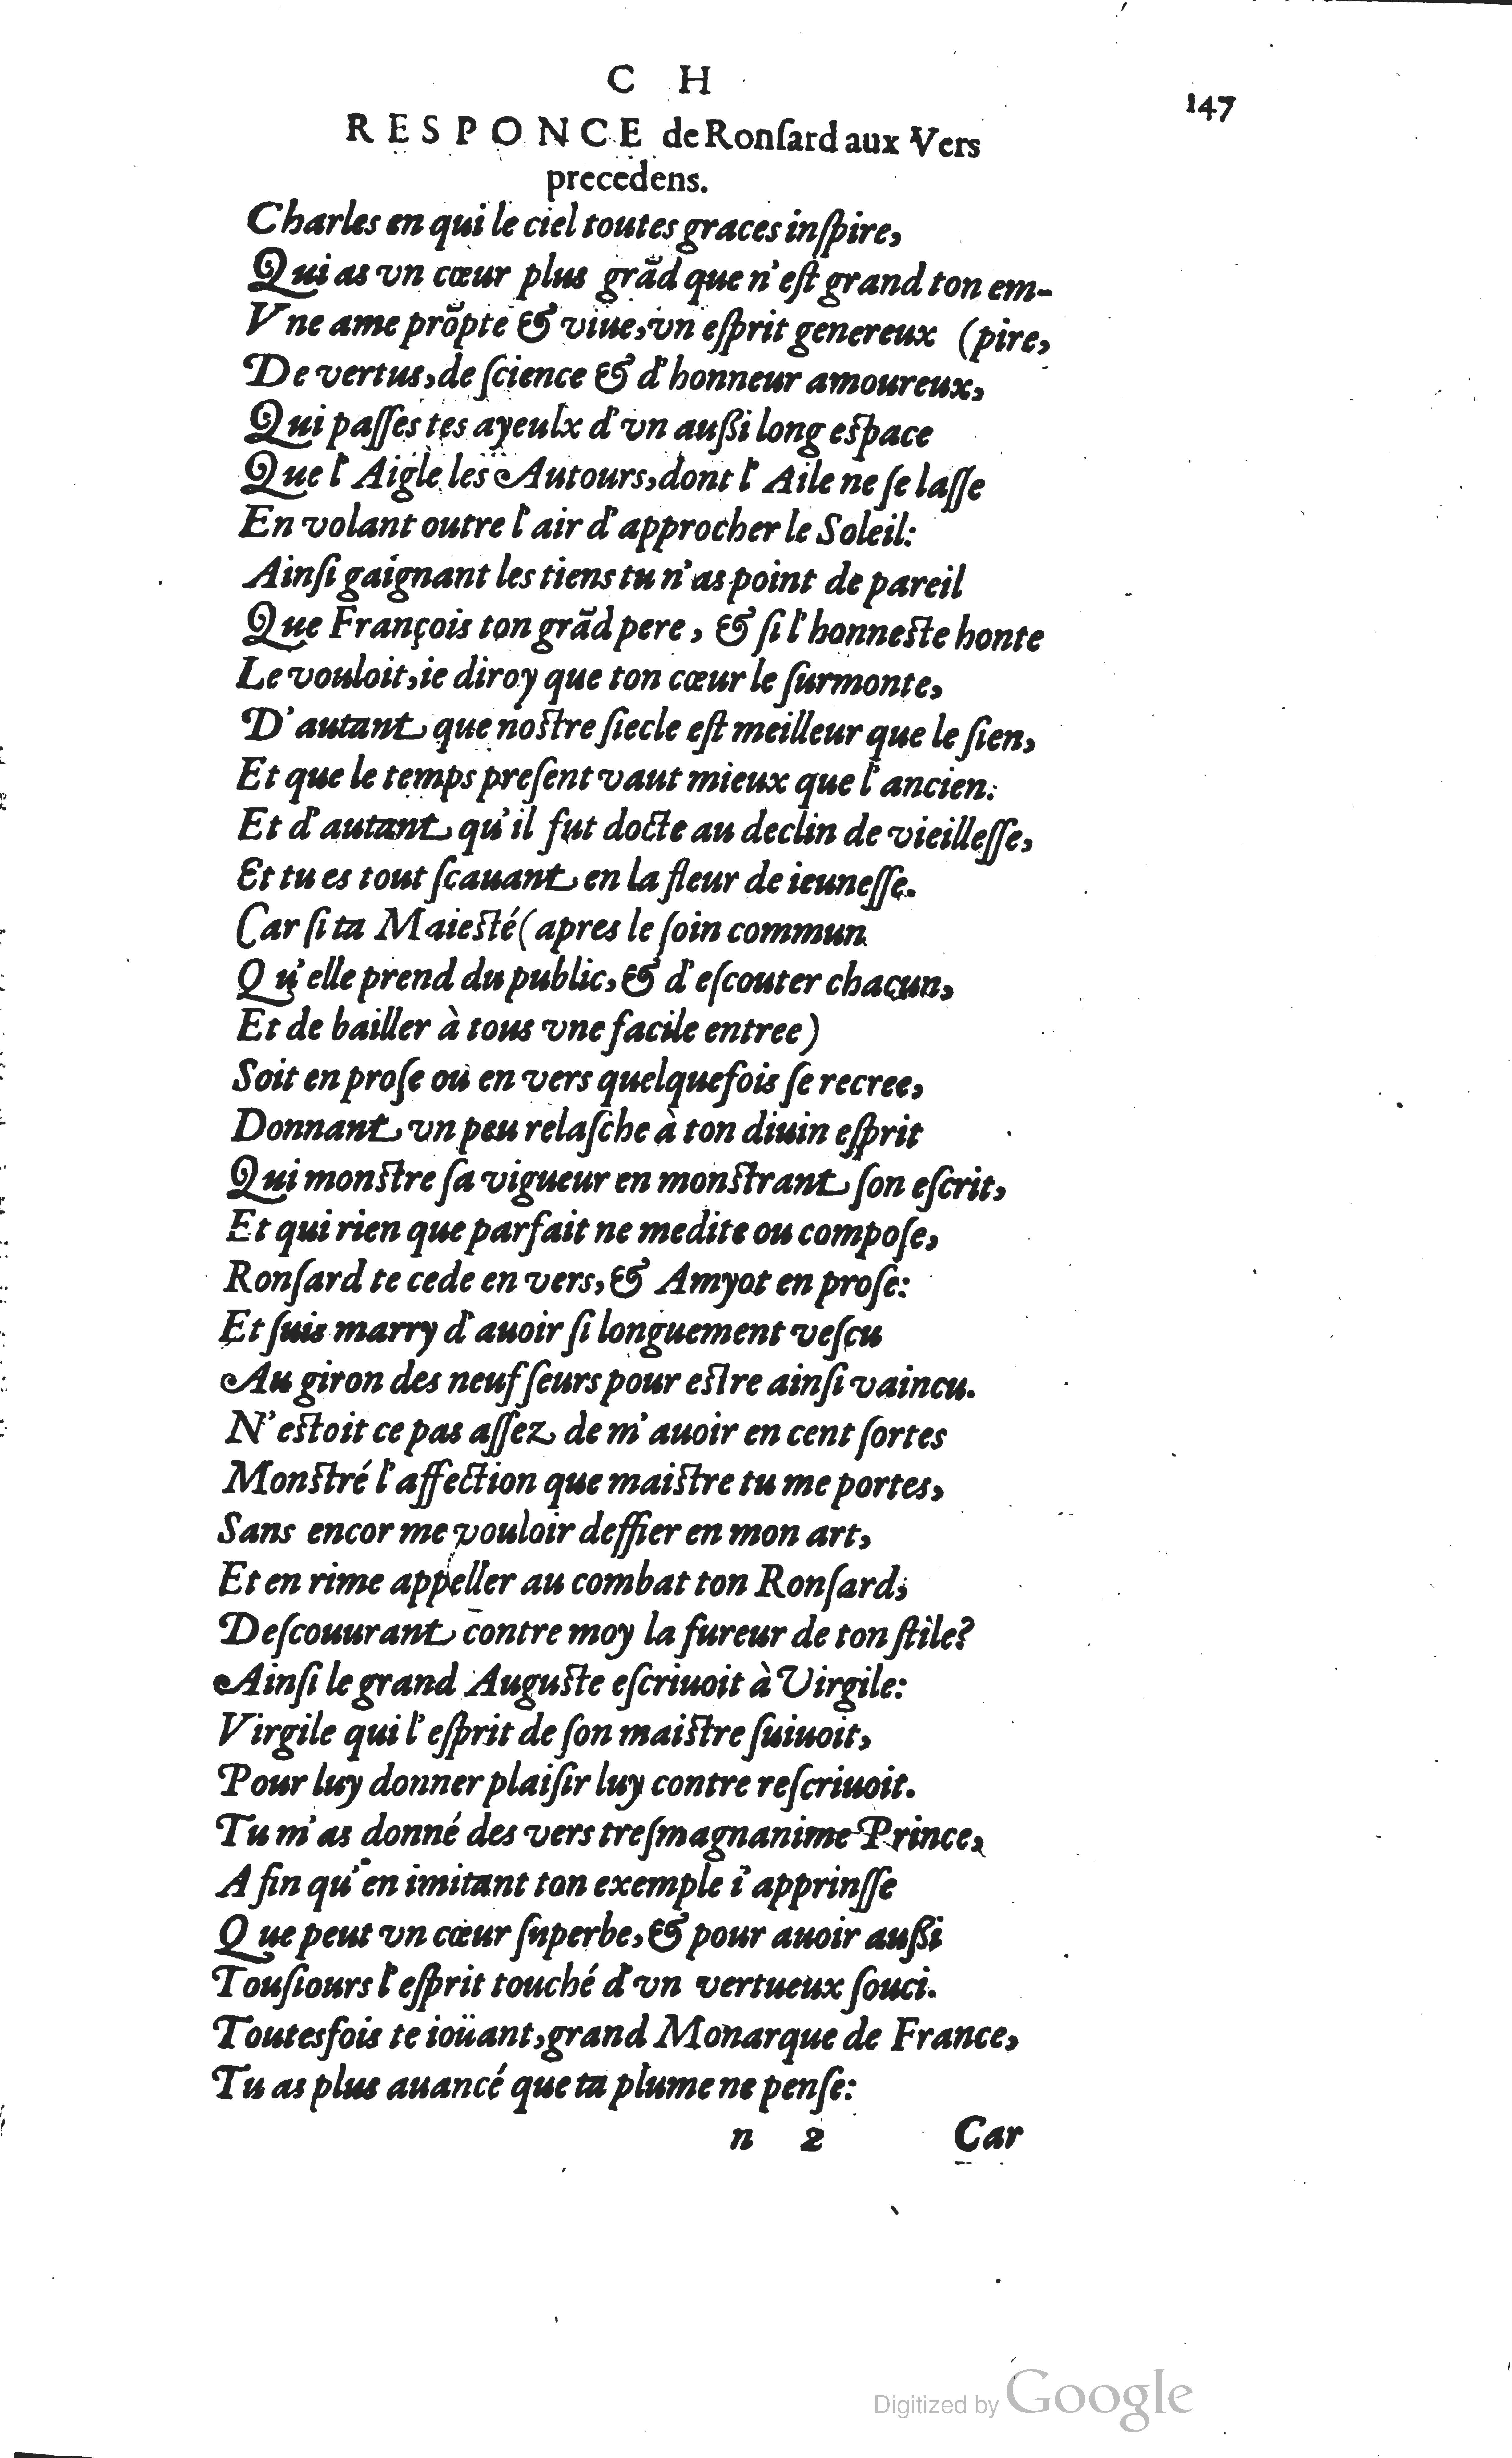 C H
147
RESPONCE de Ronſard aux Vers
precedens.
Charles en qui le ciel toutes graces inſpire,
Qui as vn cœur plus grãd que n'eſt grand ton em-
Vne ame prõpte & viue, vn eſprit genereux (pire,
De vertus, de ſcience & d'honneur amoureux,
Qui paſſes tes ayeulx d'vn auſsi long eſpace
Que l'Aigle les Autours, dont l'Aile ne ſe laſſe
En volant outre l'air d'approcher le Soleil:
Ainſi gaignant les tiens tu n'as point de pareil
Que François ton grãd pere, & ſi l'honneſte honte
Le vouloit, ie diroy que ton cœur le ſurmonte,
D'autant que noſtre ſiecle eſt meilleur que le ſien,
Et que le temps preſent vaut mieux que l'ancien:
Et d'autant qu'il fut docte au declin de vieilleſſe,
Et tu es tout ſcauant en la fleur de ieuneſſe.
Car ſi ta Maieſté (apres le ſoin commun
Qu'elle prend du public, & d'eſcouter chacun,
Et de bailler à tous vne facile entree)
Soit en proſe ou en vers quelquefois ſe recree,
Donnant vn peu relaſche à ton diuin eſprit
Qui monſtre ſa vigueur en monſtrant ſon eſcrit,
Et qui rien que parfait ne medite ou compoſe,
Ronſard te cede en vers, & Amyot en proſe:
Et ſuis marry d'auoir ſi longuement veſcu
Au giron des neuf ſeurs pour eſtre ainſi vaincu.
N'eſtoit ce pas aſſez de m'auoir en cent ſortes
Monſtré l'affection que maiſtre tu me portes,
Sans encor me vouloir deffier en mon art,
Et en rime appeller au combat ton Ronſard,
Deſcouurant contre moy la fureur de ton ſtile?
Ainſi le grand Auguſte eſcriuoit à Virgile:
Virgile qui l'eſprit de ſon maiſtre ſuiuoit,
Pour luy donner plaiſir luy contre reſcriuoit.
Tu m'as donné des vers treſmagnanime Prince,
A fin qu'en imitant ton exemple i'apprinſſe
Que peut vn cœur ſuperbe, & pour auoir auſsi
Touſiours l'eſprit touché d'vn vertueux ſouci.
Toutesfois te ioüant, grand Monarque de France,
Tu as plus auancé que ta plume ne penſe:
n 2 Car
Digitized by Google